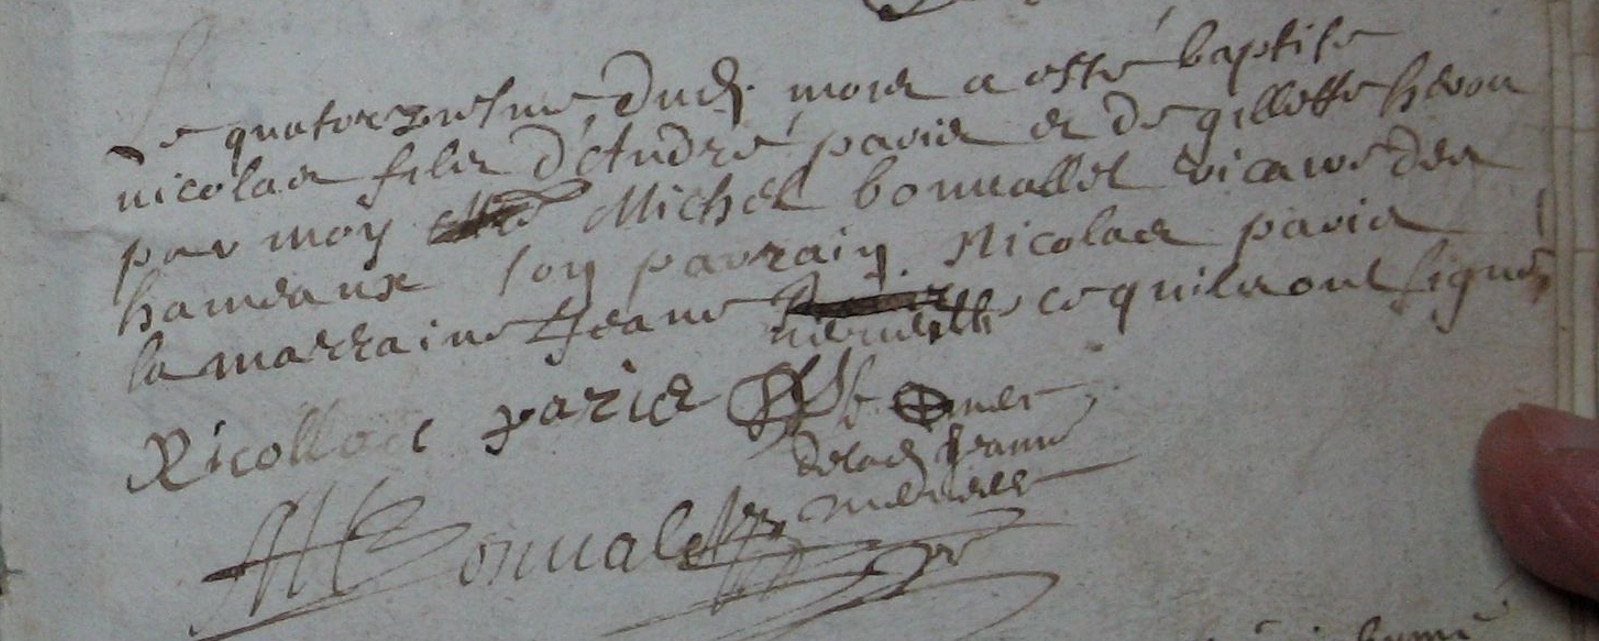 Le quatorziesme dud. mois a esté baptise
nicolas fils d'André pavis et de gillette heron
par moy Michel bonvallet vicaire des
hameaux son parrain Nicolas pavis
la marraine Jeanne
ce quils ont signé
Nicollas pavis
de lad Jeanne
MBonvalet